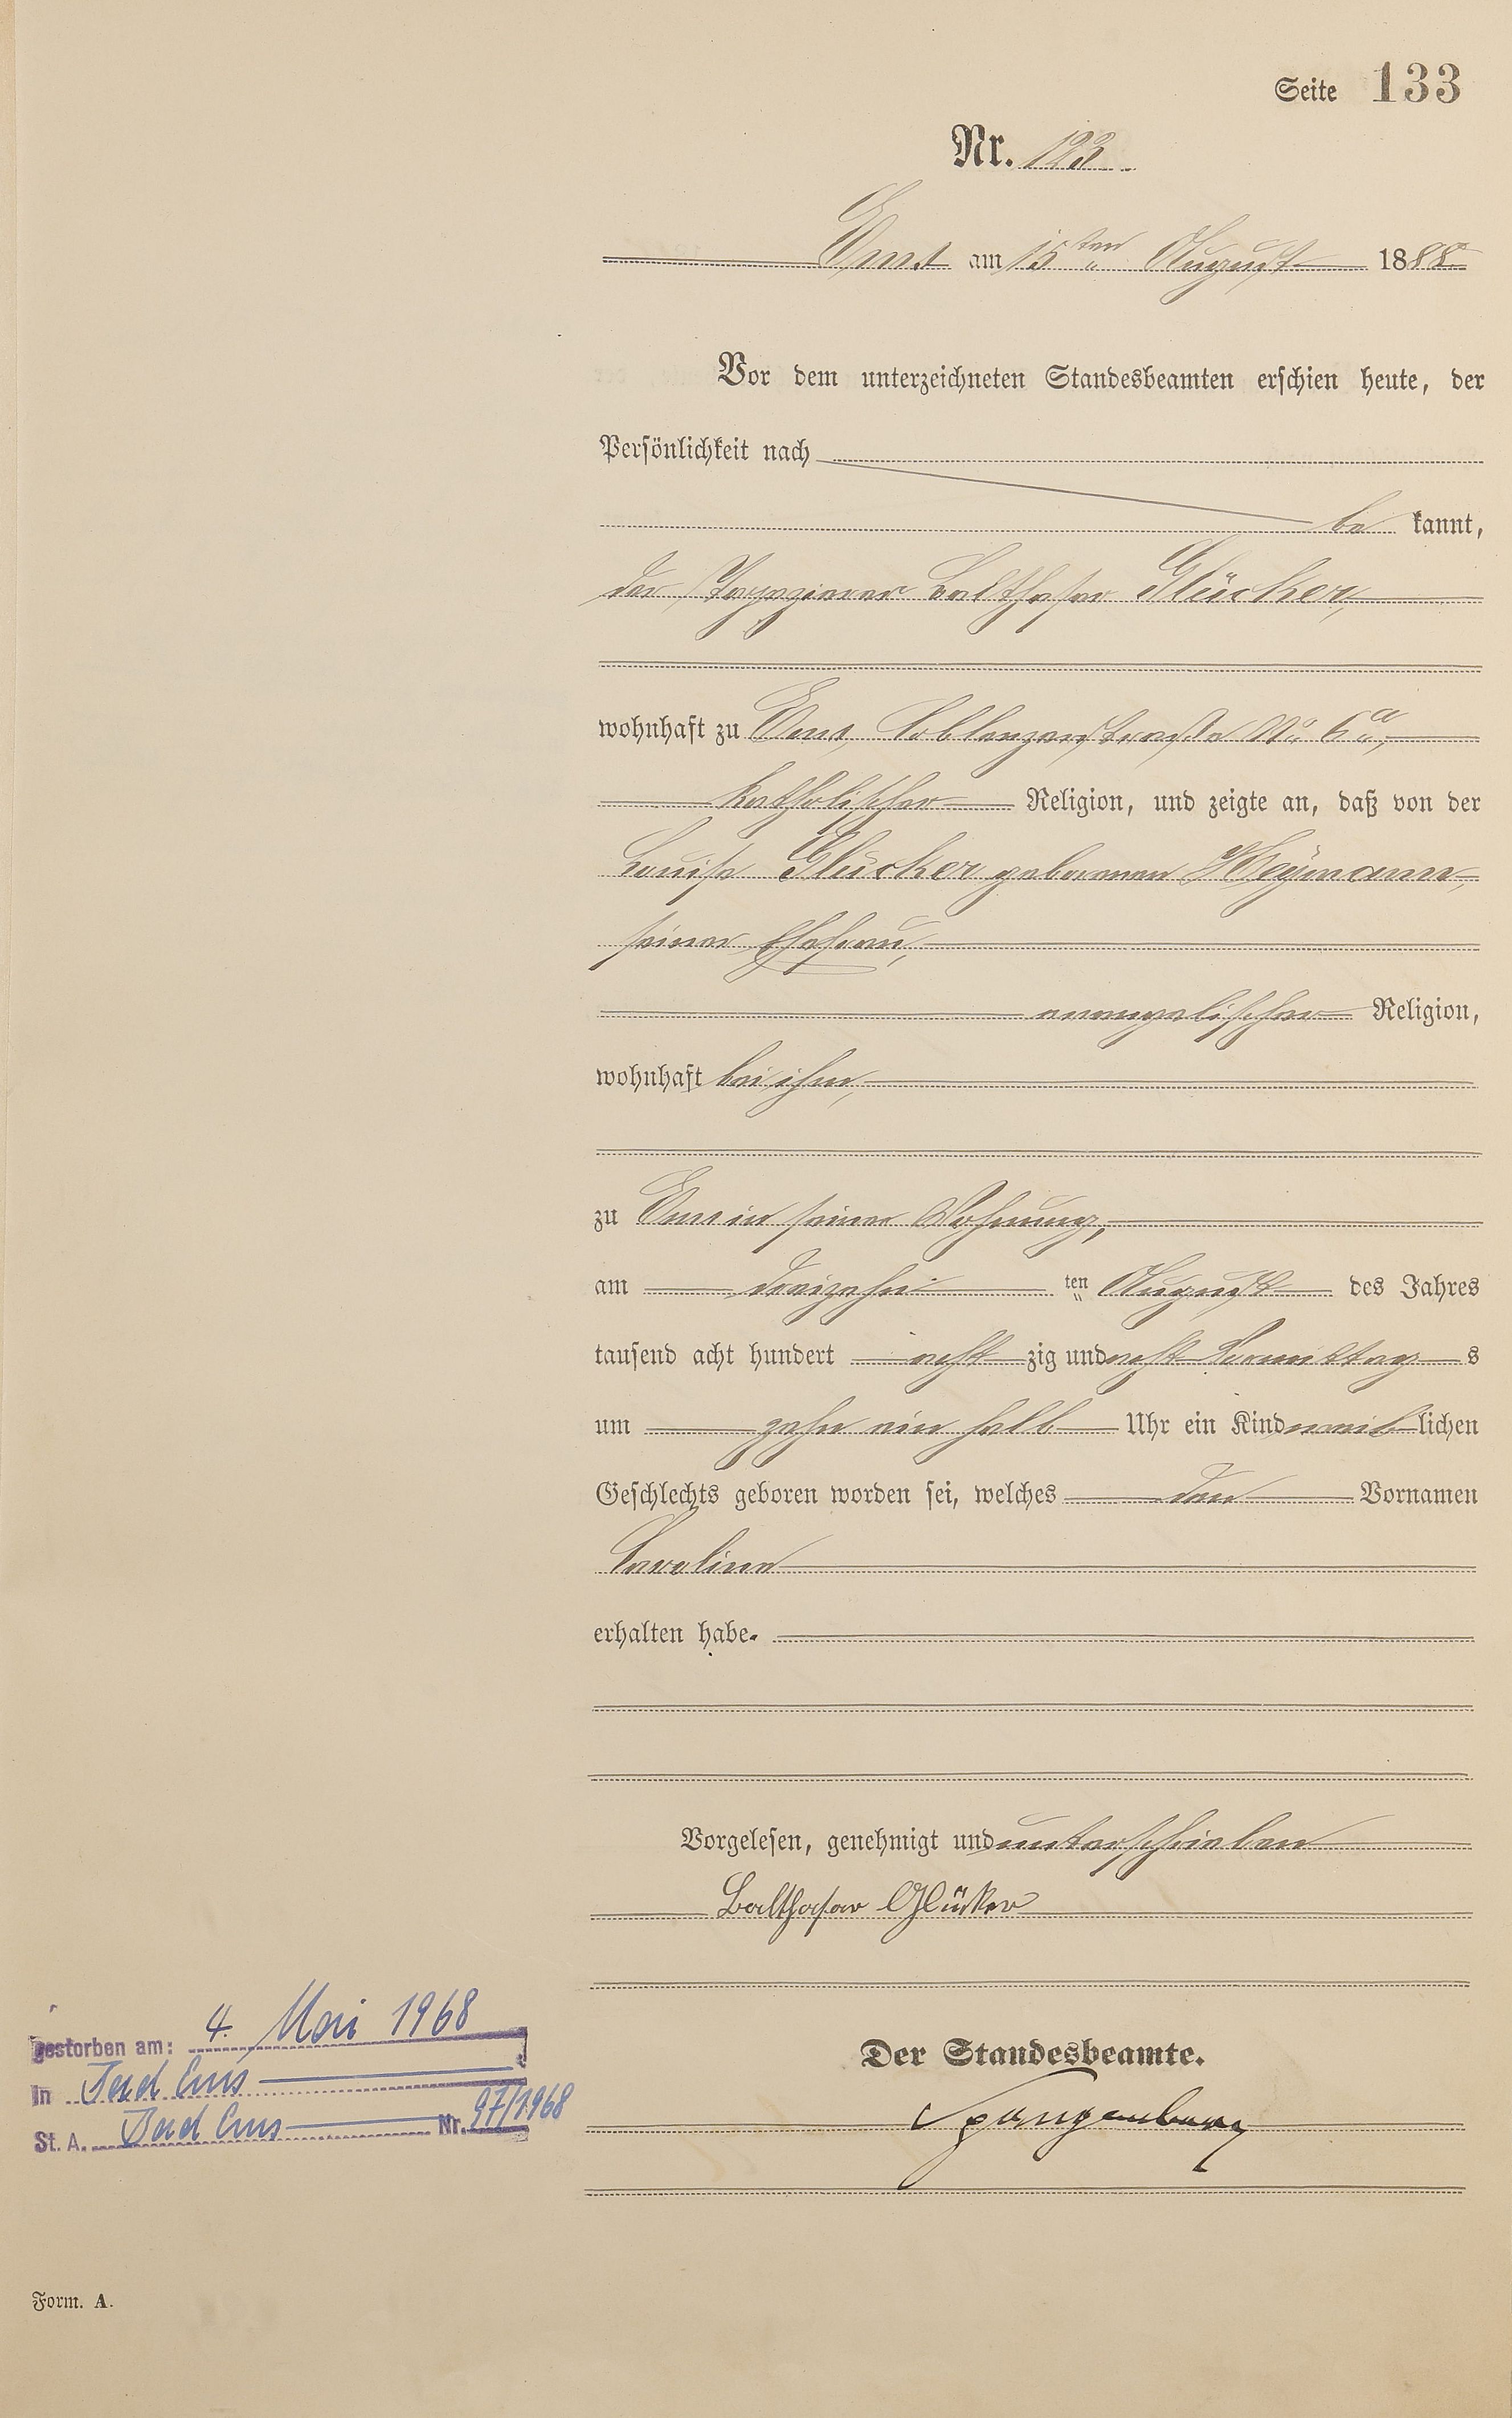 Seite 133
Nr. 123
Ems am 15ten August 1888
Vor dem unterzeichneten Standesbeamten erschien heute, der
Persönlichkeit nach
be kannt,
der Tapezierer Balthasar Glücker,
wohnhaft zu Ems, Coblenzerstraße No 6a,
katholischer Religion, und zeigte an, daß von der
Louise Glücker geborenen Weymann,
seiner Ehefrau,
evangelischer Religion,
wohnhaft bei ihm,
zu Ems in seiner Wohnung,
am dreizehn ten August des Jahres
tausend acht hundert acht zig und acht Vormittag s
um zehn ein halb Uhr ein Kind weib lichen
Geschlechts geboren worden sei, welches den Vornamen
Caroline
erhalten habe.
Vorgelesen, genehmigt und unterschrieben
Balthasar Glücker
Der Standesbeamte.
Spangenberg
gestorben am: 4. Mai 1968
in Bad Ems
St. A. Bad Ems Nr. 97/1968
Form. A.